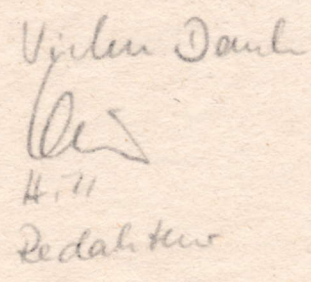 Vielen Dank
Hill
Redakteur